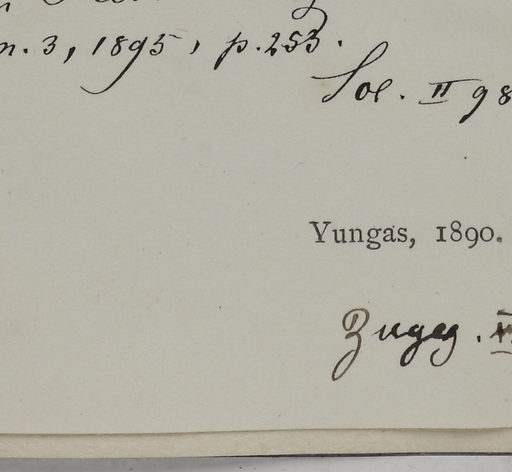 n. 3, 1895, p. 253.
Sol. II 98
Yungas, 1890.
Zugeg.